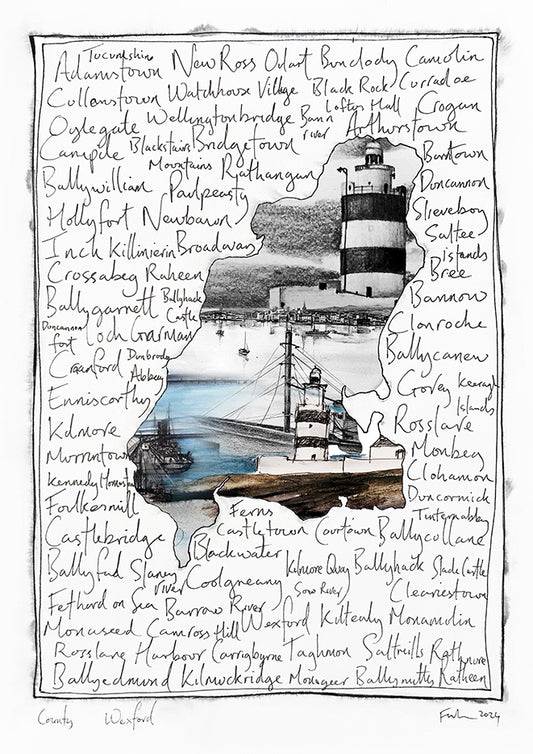 Tacumshin
Adamstown New Ross Oulart Bunclody Camolin
Cullenstown Watchhouse Village Black Rock Curracloe
Loftus Hall Crogan
Oylegate Wellingtonbridge Bann river Arthurstown
Campile Blackstairs Mountains Bridgetown Barntown
Rathangan Duncannon
Ballywillian Paulpeasty Slieveboy
Hollyfort Newbawn Saltee islands
Inch Killinierin Broadway Bree
Crossabeg Raheen Bannow
Ballygarrett Ballyhack Castle Clonroche
Duncannon fort Loch Garman Ballycanew
Craanford Dunbrody Abbey Gorey Kearagh Islands
Enniscorthy Rosslare
Kilmore Monbeg
Murrintown Clohamon
Kennedy Homestead Duncormick
Foulksmill Ferns Tinternabbey
Castlebridge Castletown Courtown Ballycullane
Blackwater
Ballyfad Slaney river Coolgreany Kilmore Quay Ballyhack Slade Castle
Sow River Clearestown
Fethard on Sea Barrow River
Monaseed Camross Hill Wexford Kiltealy Monamolin
Rosslare Harbour Carrigbyrne Taghmon Saltmills Rathnure
Ballyedmund Kilmuckridge Monageer Ballymitty Ratheen
County Wexford 2024